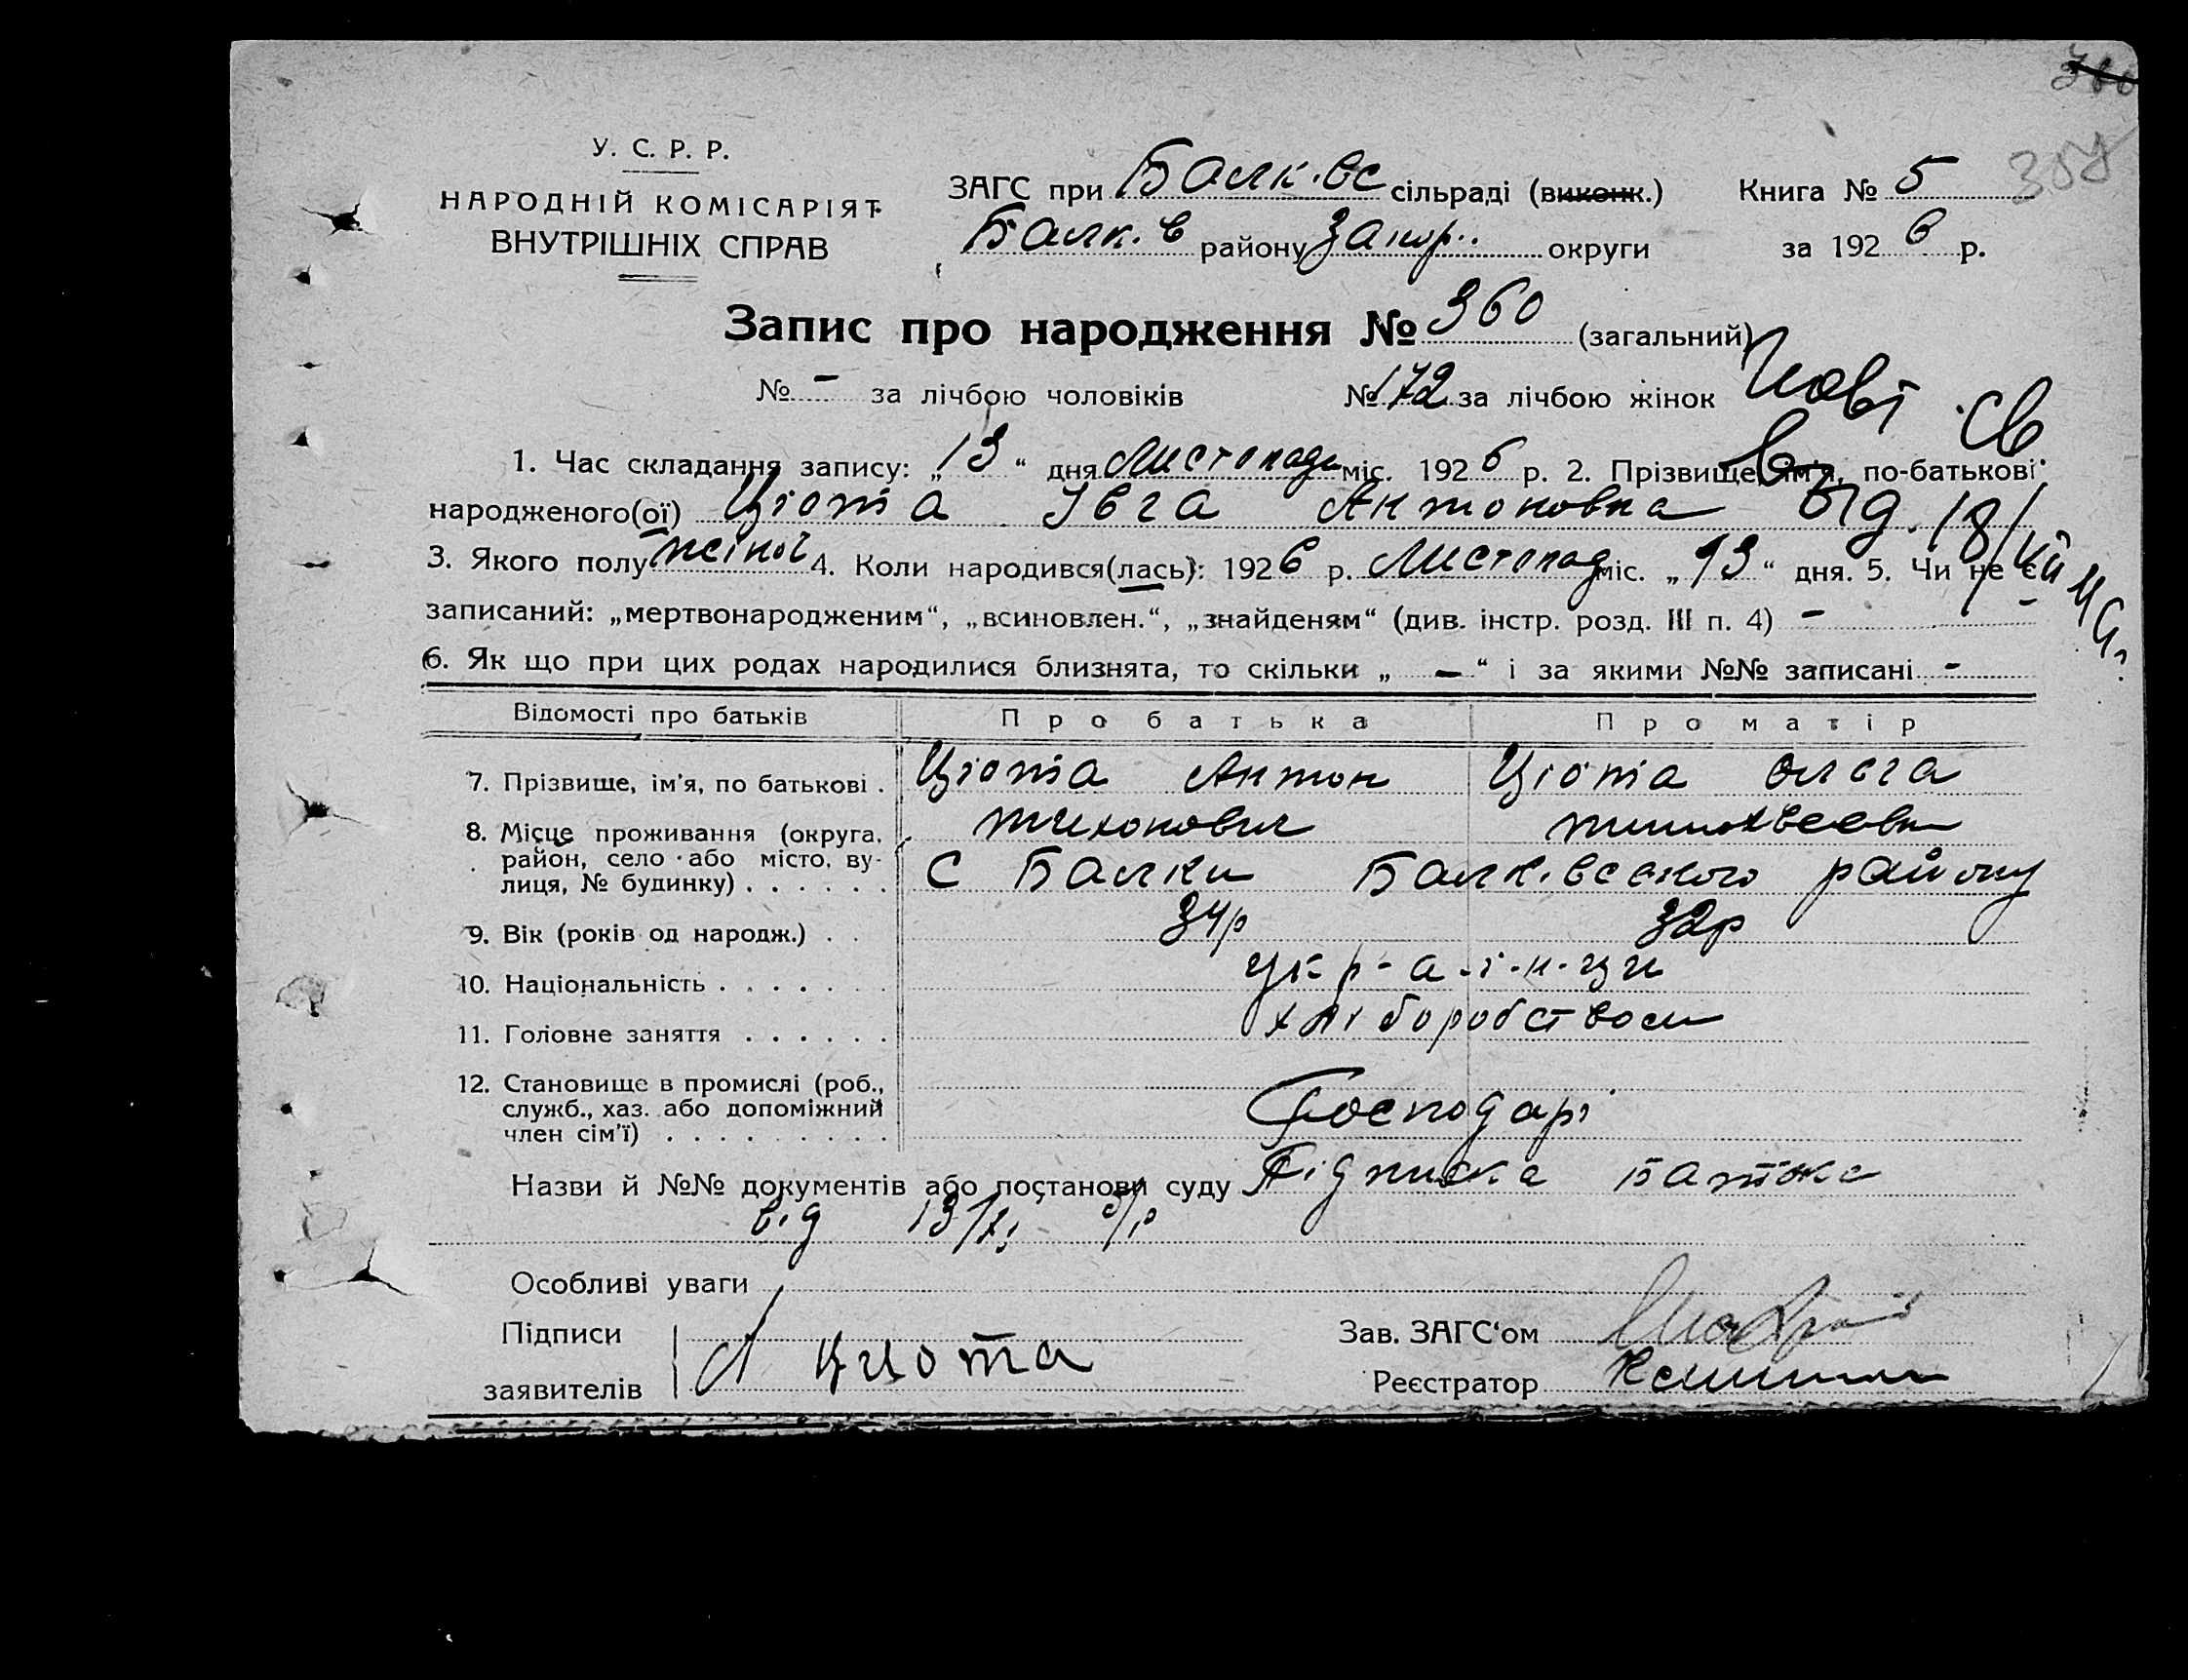 У. С. Р. Р.
НАРОДНІЙ КОМІСАРІЯТ
ВНУТРІШНІХ СПРАВ
ЗАГС при Балк.вс сільраді (виконк.) Книга № 5
Балк. в району Запор.. округи за 1926 р.
Запис про народження № 360 (загальний)
№ - за лічбою чоловіків № 172 за лічбою жінок
1. Час складання запису: „13“ дня Листопада міс. 1926 р. 2. Прізвище, ім'я, по-батькові
народженого(ої) Ціота Івга Антоновна
від 18/VII
3. Якого полу жіноі 4. Коли народився(лась): 1926 р. Листопад міс. „13“ дня. 5. Чи не є
записаний: „мертвонародженим“, „всиновлен.“, „знайденям“ (див. інстр. розд. III п. 4) -
6. Як що при цих родах народилися близнята, то скільки „ — “ і за якими №№ записані -
Відомості про батьків Про батька Про матір
7. Прізвище, ім'я, по батькові . Ціота Антон Ціота Ольга
Тихонович
8. Місце проживання (округа,
район, село або місто, ву-
лиця, № будинку) . . . . . . С Балки Балк.вского району
9. Вік (років од народж.) . . 34р 32р
10. Національність . . . . . . . укр-а-ї-н-ци
11. Головне заняття . . . . . . хліборобством
12. Становище в промислі (роб.,
служб., хаз. або допоміжний
член сім'ї) . . . . . . . . . Господарі
Назви й №№ документів або постанови суду Підписка Батька
від 13/XI
Особливі уваги
Підписи
заявителів А Циота
Зав. ЗАГС'ом
Реєстратор